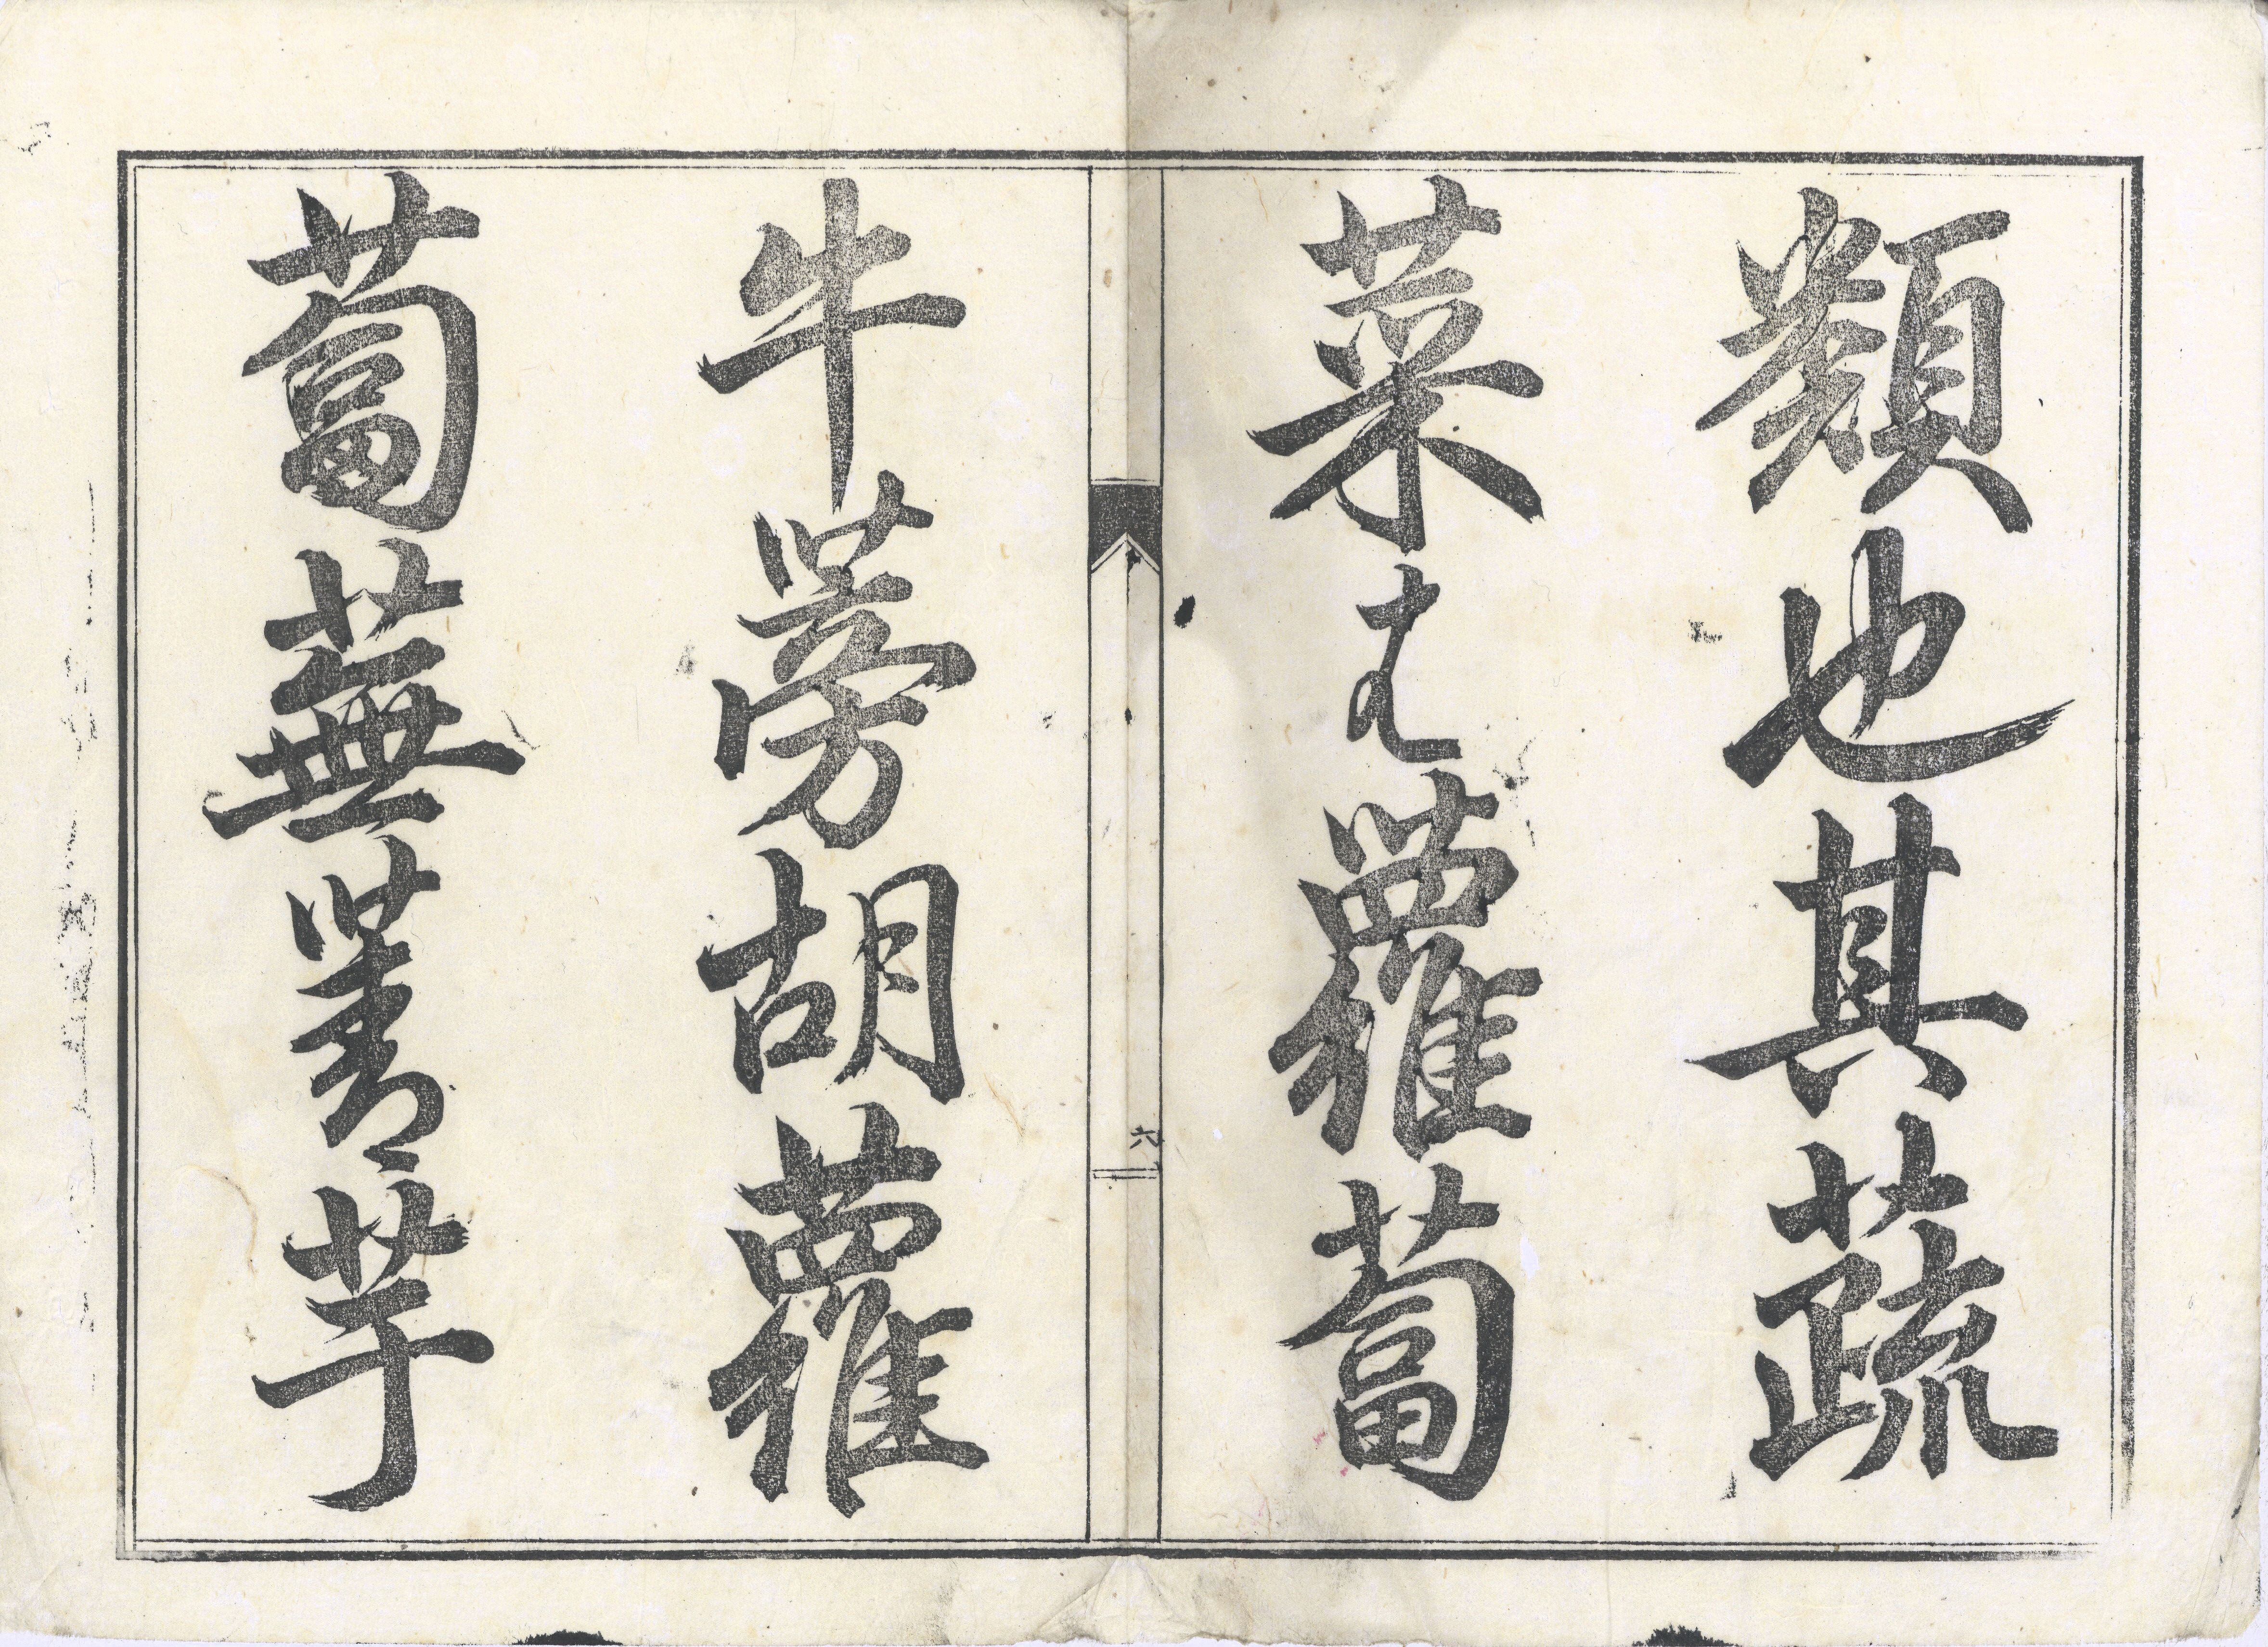 類也其蔬
菜は蘿蔔
六
牛蒡胡蘿
蔔蕪菁芋